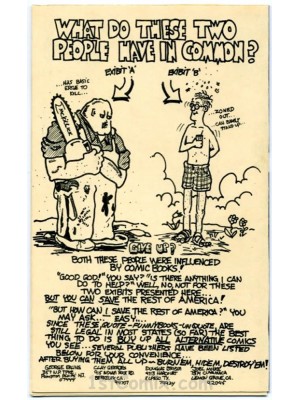 WHAT DO THESE TWO
PEOPLE HAVE IN COMMON?
EXIBIT 'A'
EXIBIT 'B'
...HAS BASIC
URGE TO
KILL...
...ZONED
OUT...
CAN BARELY
STAND UP...
GIVE UP?
BOTH THESE PEOPLE WERE INFLUENCED
BY COMIC BOOKS!
"GOOD GOD!" YOU SAY? "IS THERE ANYTHING I CAN
DO TO HELP?" WELL, NO, NOT FOR THESE
TWO EXIBITS PRESENTED HERE...
BUT YOU CAN SAVE THE REST OF AMERICA!
"BUT HOW CAN I SAVE THE REST OF AMERICA?" YOU
MAY ASK.... EASY...
SINCE THESE QUOTE-FUNNYBOOKS-UNQUOTE ARE
STILL LEGAL IN MOST STATES (SO FAR) THE BEST
THING TO DO IS BUY UP ALL ALTERNATIVE COMICS
YOU SEE... SEVERAL PUBLISHERS HAVE BEEN LISTED
BELOW FOR YOUR CONVENIENCE...
AFTER BUYING THEM ALL UP--BURN'EM, HIDE'M, DESTROY'EM!
GEORGE
CLAY GEERDES
BERKELEY, CA
LEMON GROVE, CA.
1STCOMIX.COM